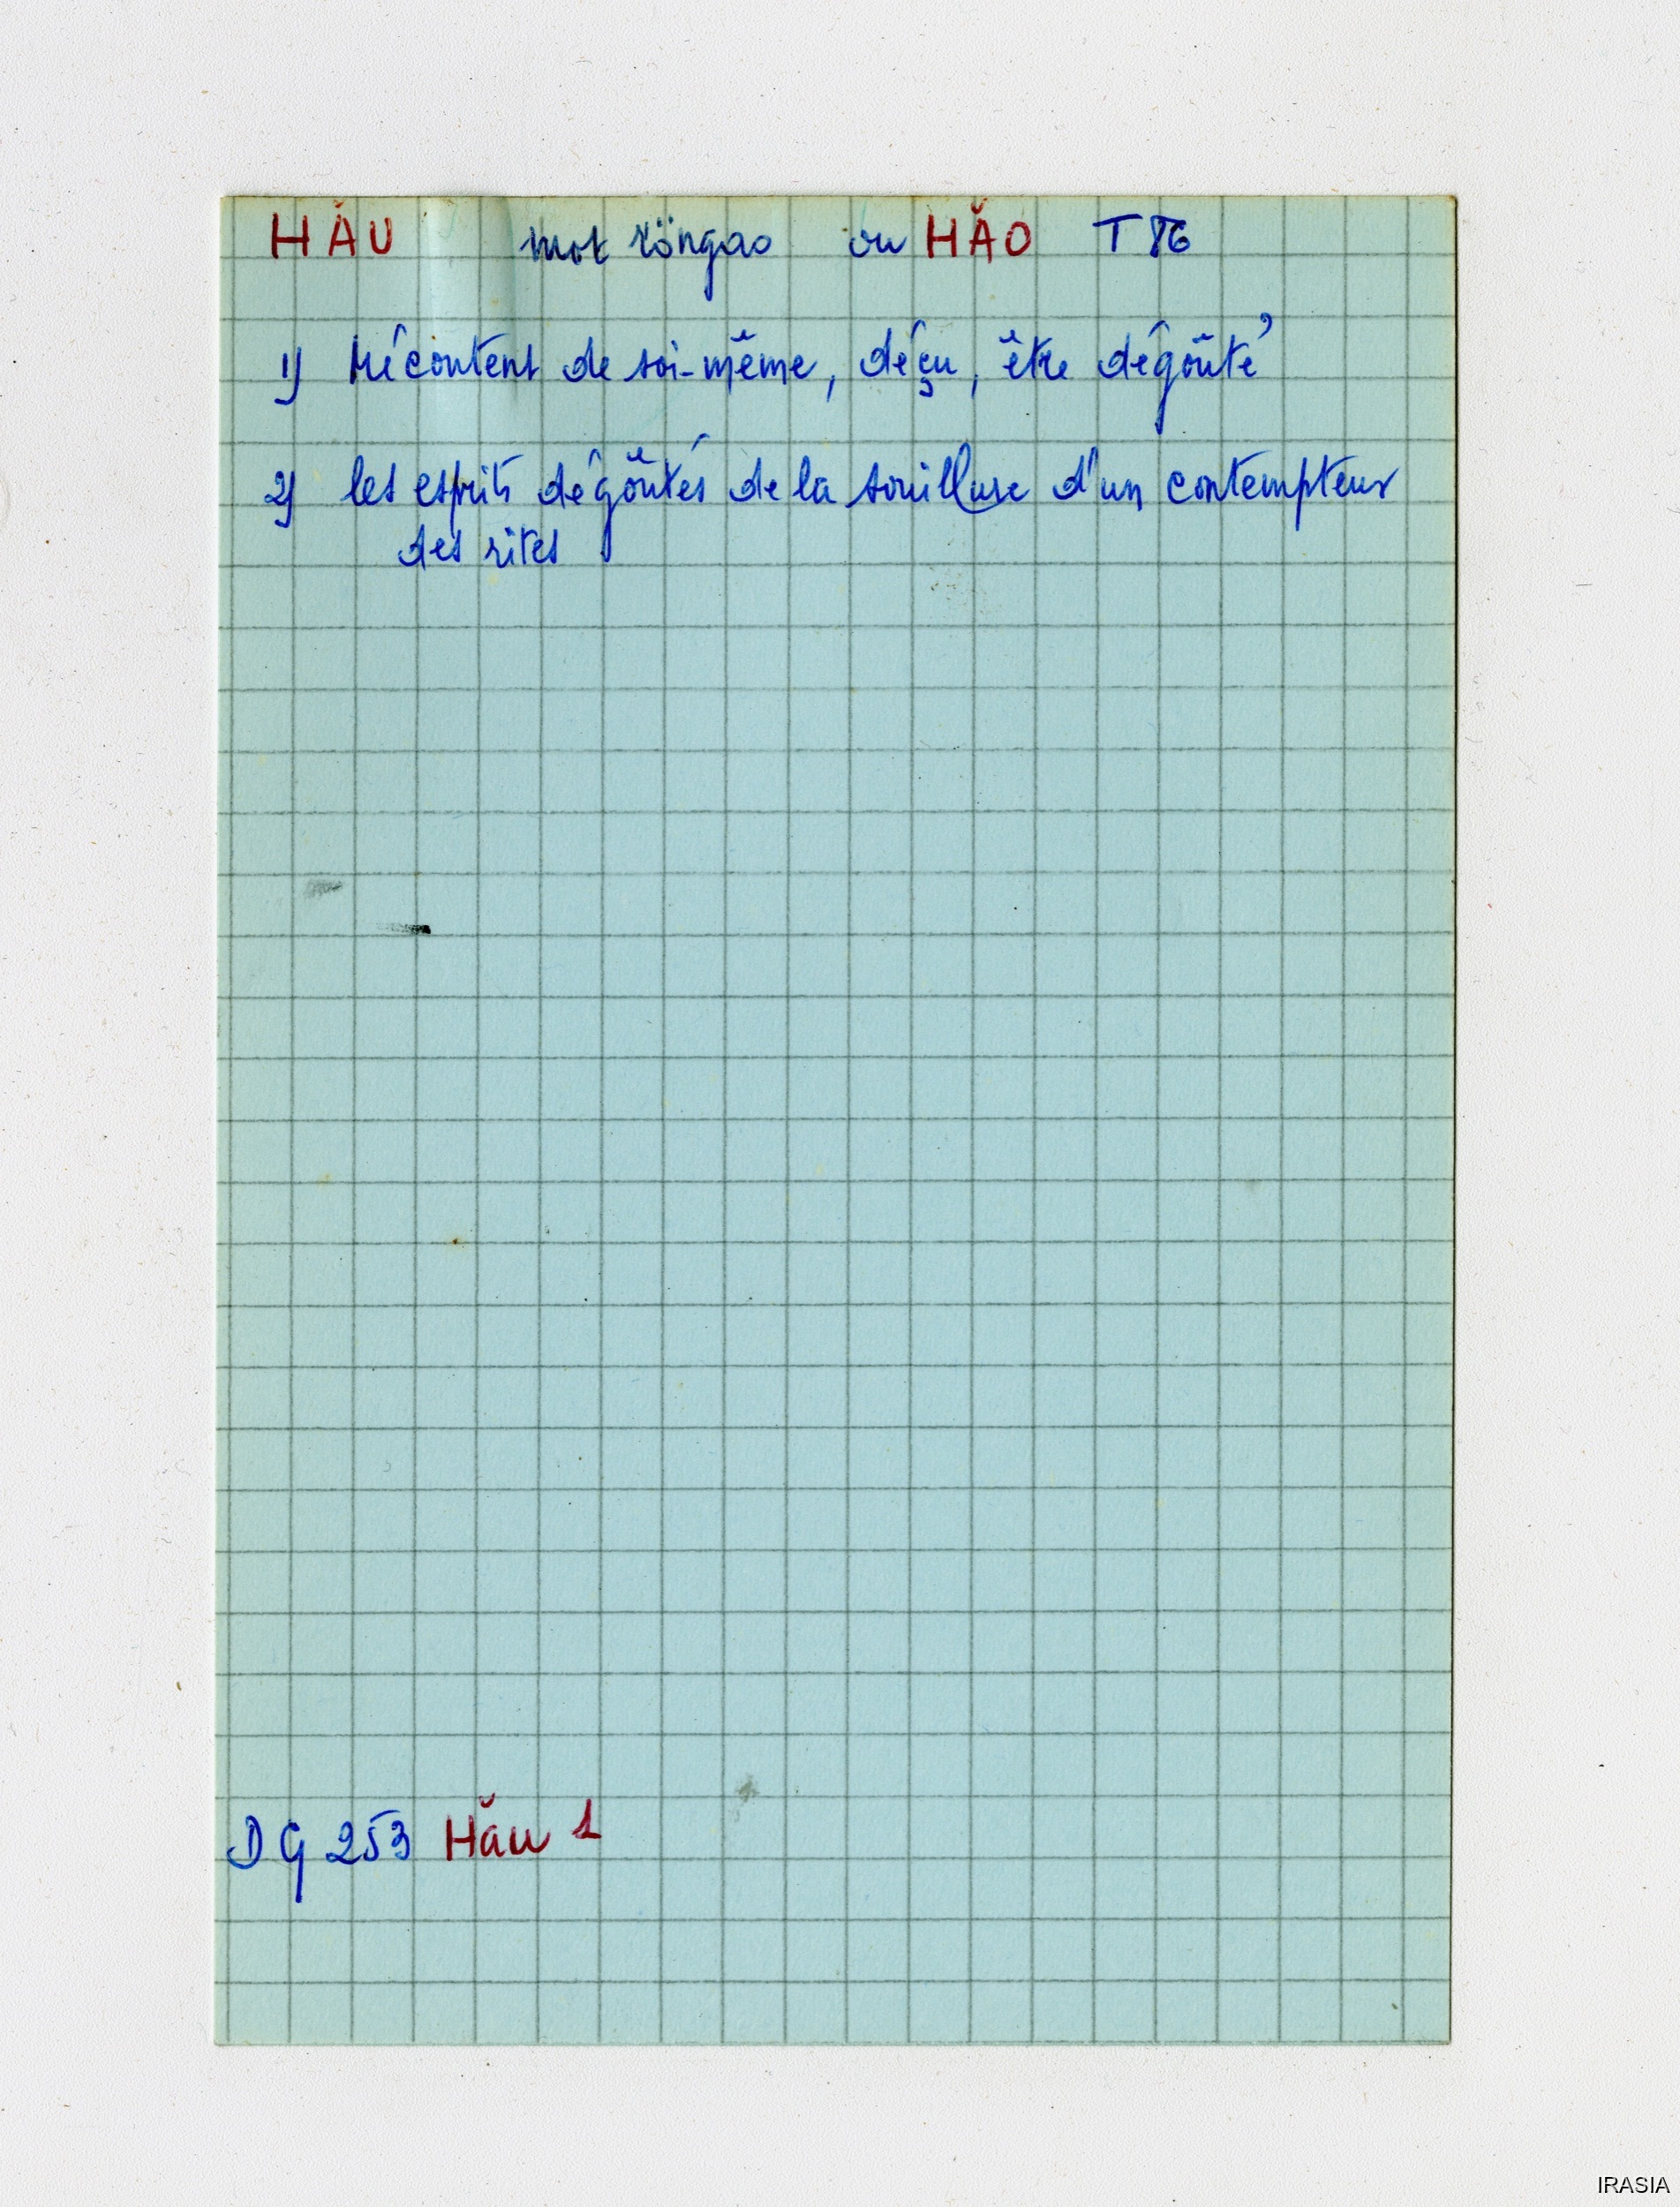 HĂU mot röngao ou HĂO T86
1) Mécontent de soi-même, déçu, être dégoûté
2) les esprits dégoûtés de la souillure d'un contempteur
des rites
DG 253 Hău 1
IRASIA